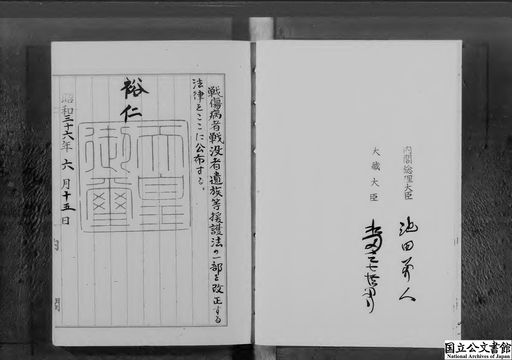 内閣総理大臣
池田勇人
大蔵大臣
戦傷病者戦没者遺族等援護法の一部を改正する
法律をここに公布する。
裕仁
天皇
御璽
昭和三十六年六月十五日
国立公文書館
National Archives of Japan